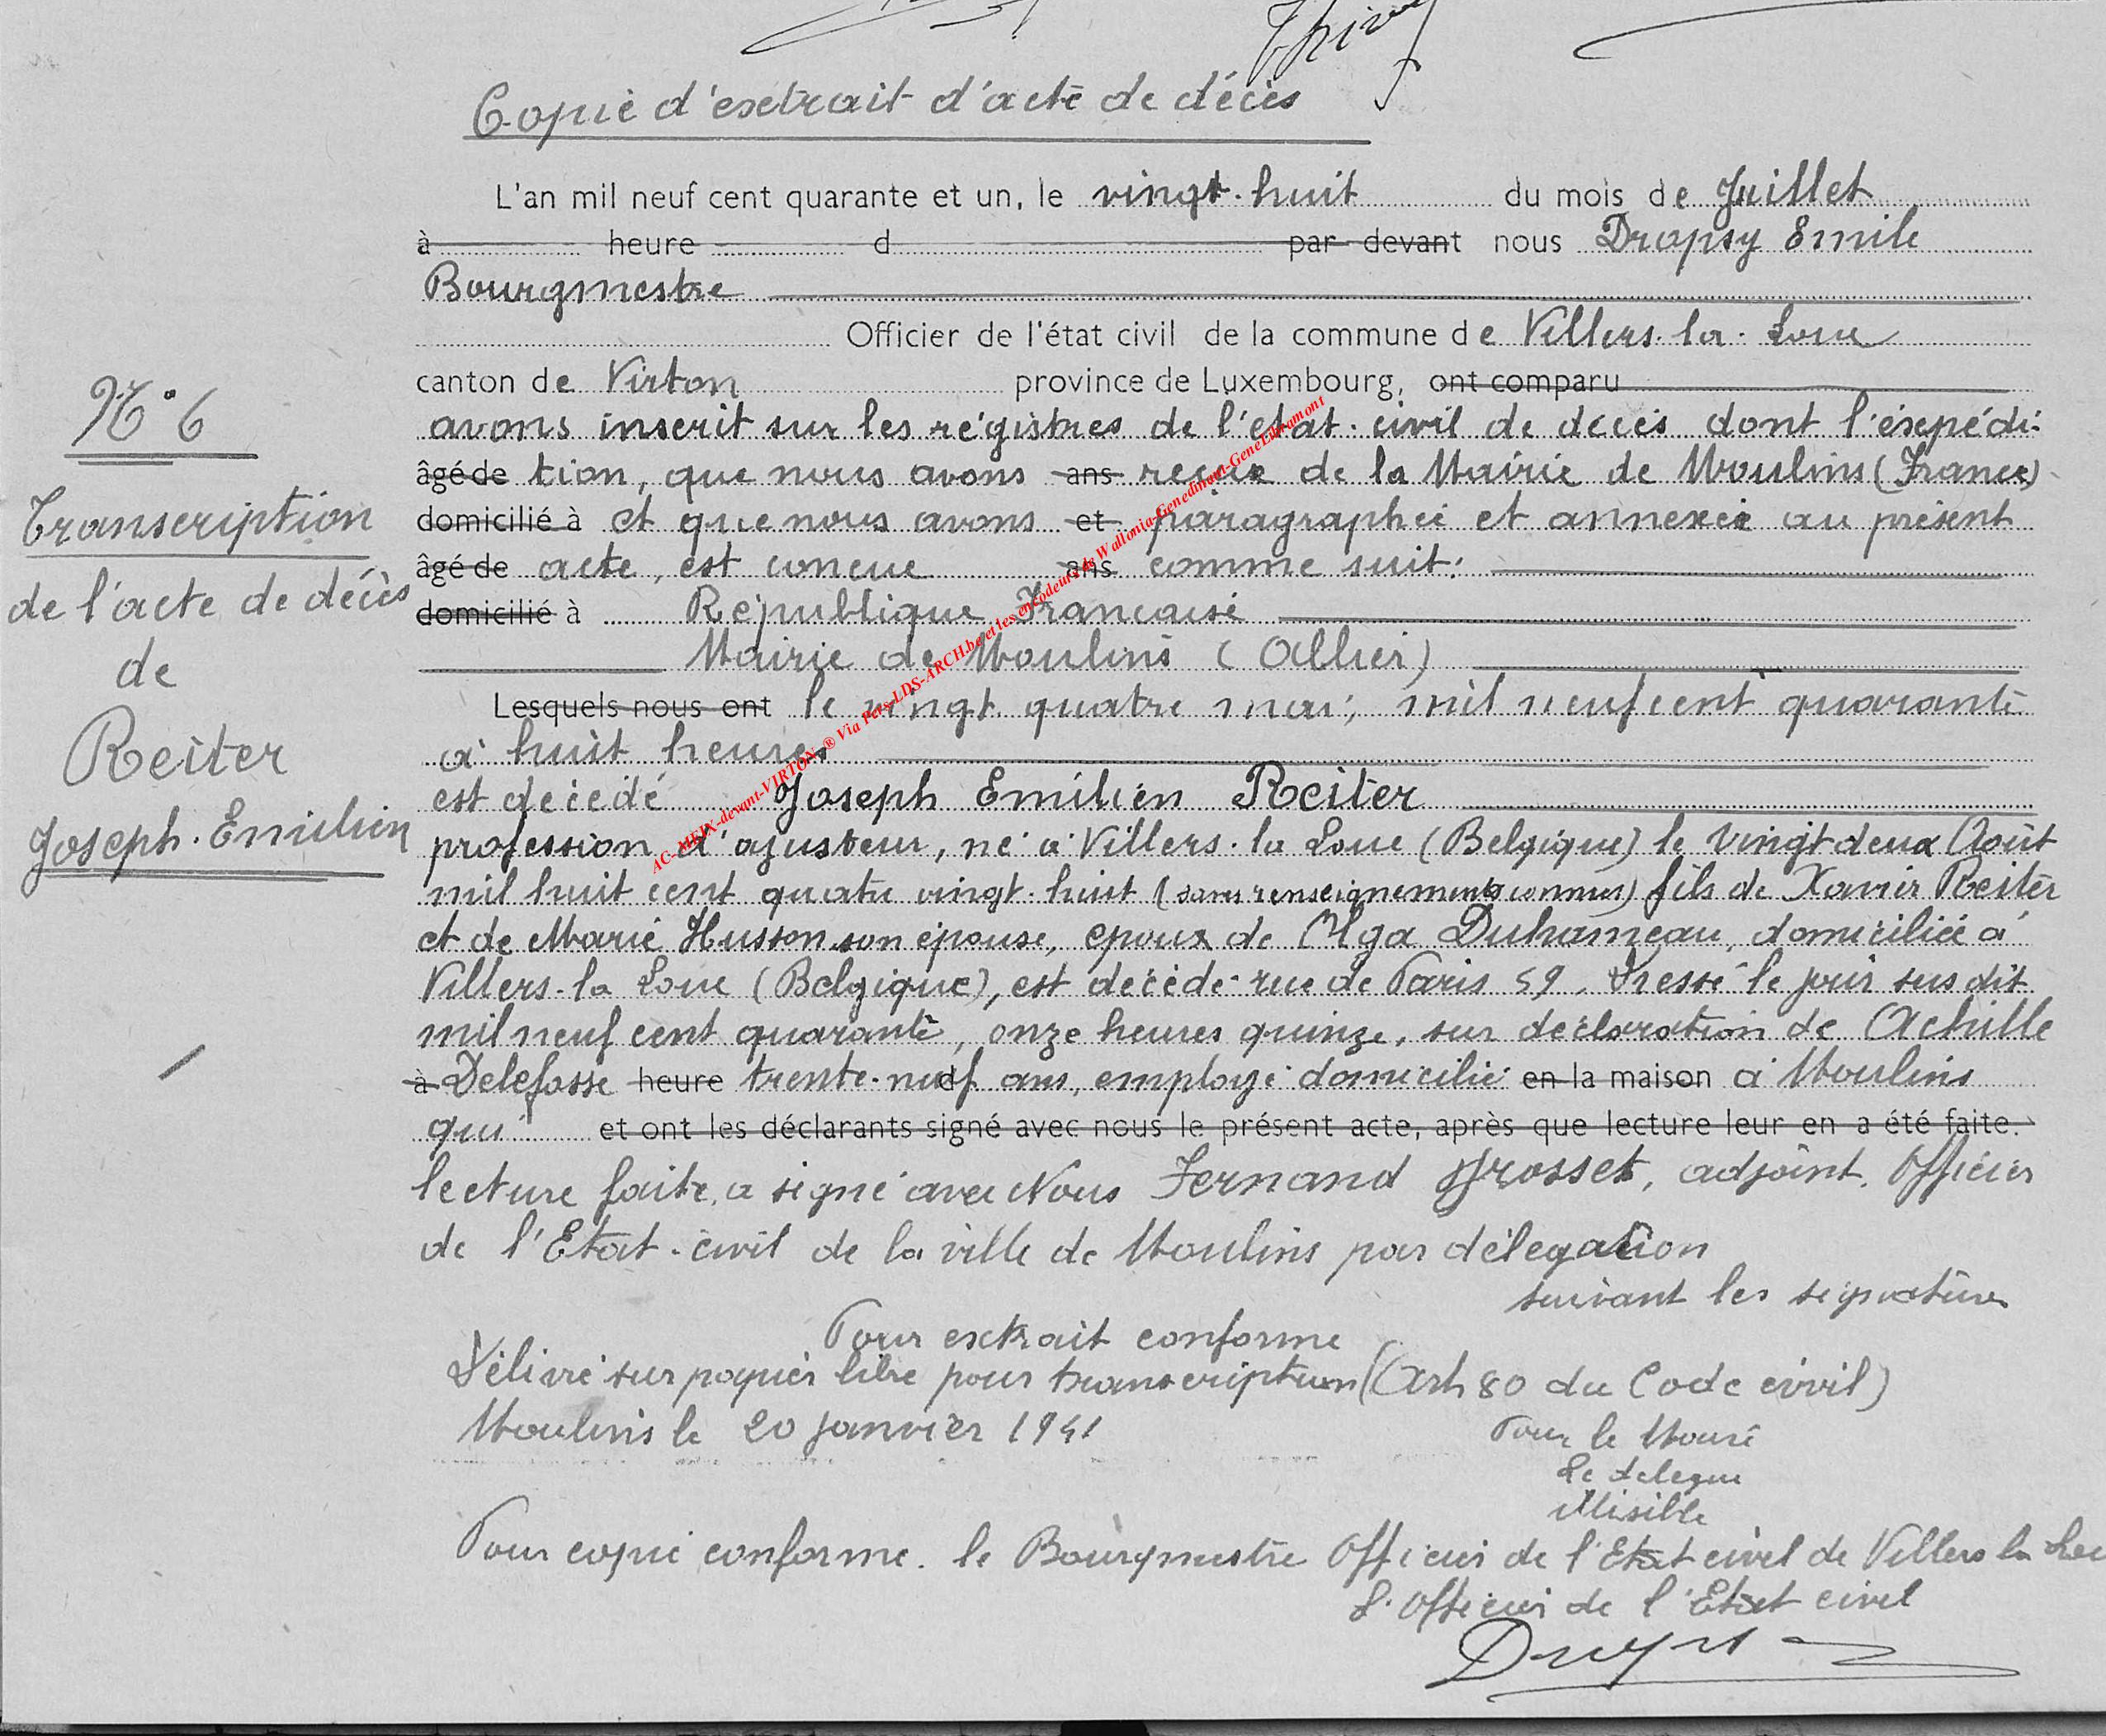 Copie d'extrait d'acte de décès
L'an mil neuf cent quarante et un, le vingt-huit du mois de Juillet
à heure d par devant nous Dropsy Emile
Bourgmestre
Officier de l'état civil de la commune de Villers-la-Loue
canton de Virton province de Luxembourg, ont comparu
avons inscrit sur les régistres de l'état-civil de décès dont l'éxpédi-
âgé de tion, que nous avons ans reçue de la Mairie de Moulins (France)
domicilié à et que nous avons et paragraphée et annexée au présent
âgé de acte, est concue ans comme suit:
domicilié à République Francaise
Mairie de Moulins (Allier)
Lesquels nous ont le vingt quatre mai, mil neuf cent quarante
à huit heures
est décédé Joseph Emilien Reiter
profession d'ajusteur, né à Villers-la-Loue (Belgique) le vingt deux Août
mil huit cent quatre vingt-huit (sans renseignements connus) fils de Xavier Reiter
et de Marie Husson son épouse, époux de Olga Duhameau, domiciliée à
Villers-la Loue (Belgique), est décédé rue de Paris 59. Dressé le jour sus dit
mil neuf cent quarante, onze heures quinze, sur déclaration de Achille
à Delefosse heure trente-neuf ans, employé domicilié en la maison à Moulins
qui et ont les déclarants signé avec nous le présent acte, après que lecture leur en a été faite.
lecture faite, a signé avec Nous Fernand Grosset, adjoint, Officier
de l'Etat-civil de la ville de Moulins par délegation
suivant les signatures
Pour extrait conforme
Délivré sur papier libre pour transcription (Art 80 du Code civil)
Moulins le 20 janvier 1941
Pour le Maire
Le delegue
illisible
Pour copie conforme. le Bourgmestre Officier de l'Etat civil de Villers la Loue
L'Officier de l'Etat civil
Dropsy
N° 6
Transcription
de l'acte de décès
de
Reiter
Joseph-Emilien
AC-MEIX-devant-VIRTON-® Via Pers-LDS-ARCH.be et les encodeurs de Wallonia-Genedinant-GeneLibramont